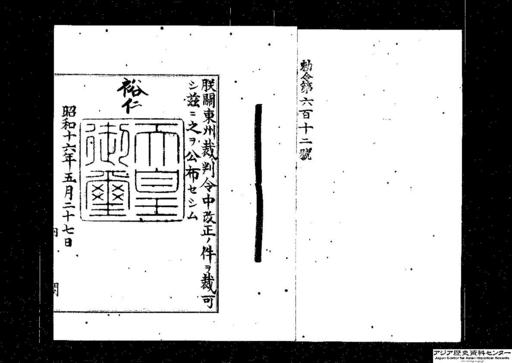 勅令第六百十二號
朕關東州裁判令中改正ノ件ヲ裁可
シ茲ニ之ヲ公布セシム
裕仁
天皇
御璽
昭和十六年五月二十七日
内閣
アジア歴史資料センター
Japan Center for Asian Historical Records